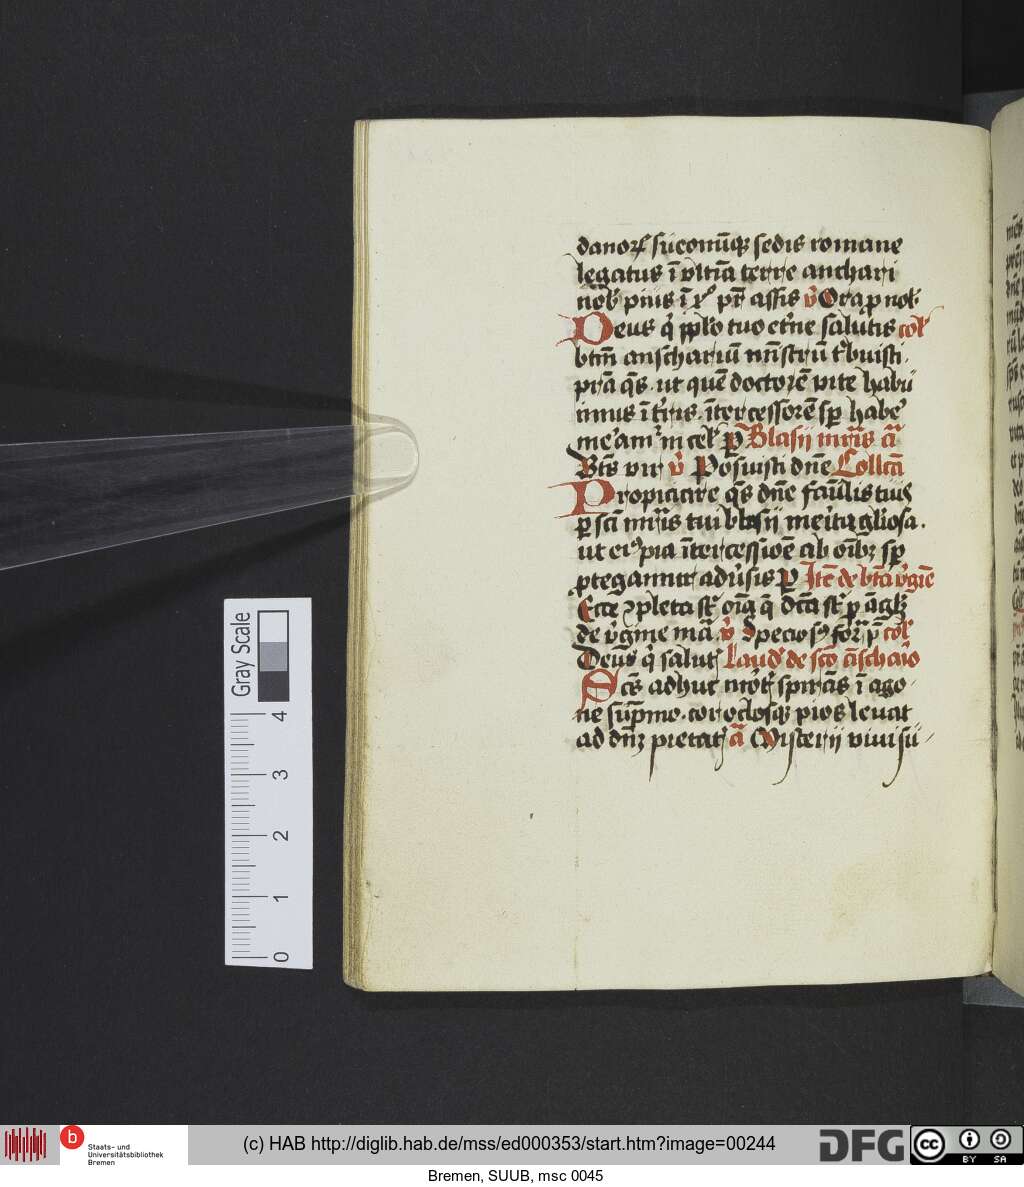 danoꝝ sueonūqꝫ sedis romane
legatus ī vltīa terre anchari
nob̄ pius ī pr̄ assis v̄ Ora p nob̄
Deus q̄ pplo tuo et̄ne salutis col̄
btm̄ anscharium mīstrū tbuisti
pr̄a q̄s ut quē doctorē vite habu
imus ī tr̄ris ītercessorē sp̄ habe
meam̄ in cel̄ p̄ Blasii mr̄is ā
Bt̄s vir v̄ Posuisti dn̄e Collcā
Propiciare q̄s dn̄e famulis tuis
p sci mr̄is tui blasii merita gl̄iosa.
ut ei pia ītercessiōe ab oībꝫ sp̄
ptegantur aduersis p̄ Itē de bt̄a v̄gīe
Ecce ꝯpleta st̄ oīa q̄ dc̄a st̄ p āgl̄ꝫ
de v̄gine mā v̄ Speciosꝰ for̄ p̄ col̄
Deus q̄ salut̄ Laud̄ de sc̄o āscharīo
Scs̄ adhuc spirās ī ago
ne sup̄mo cor oc̄losqꝫ pios leuat
ad dn̄ꝫ pietat̄ ā Misterii viui su
Gray Scale
4
3
2
1
0
b
Staats- und
Universitätsbibliothek
Bremen
(c) HAB http://diglib.hab.de/mss/ed000353/start.htm?image=00244
DFG
cc BY SA
Bremen, SUUB, msc 0045